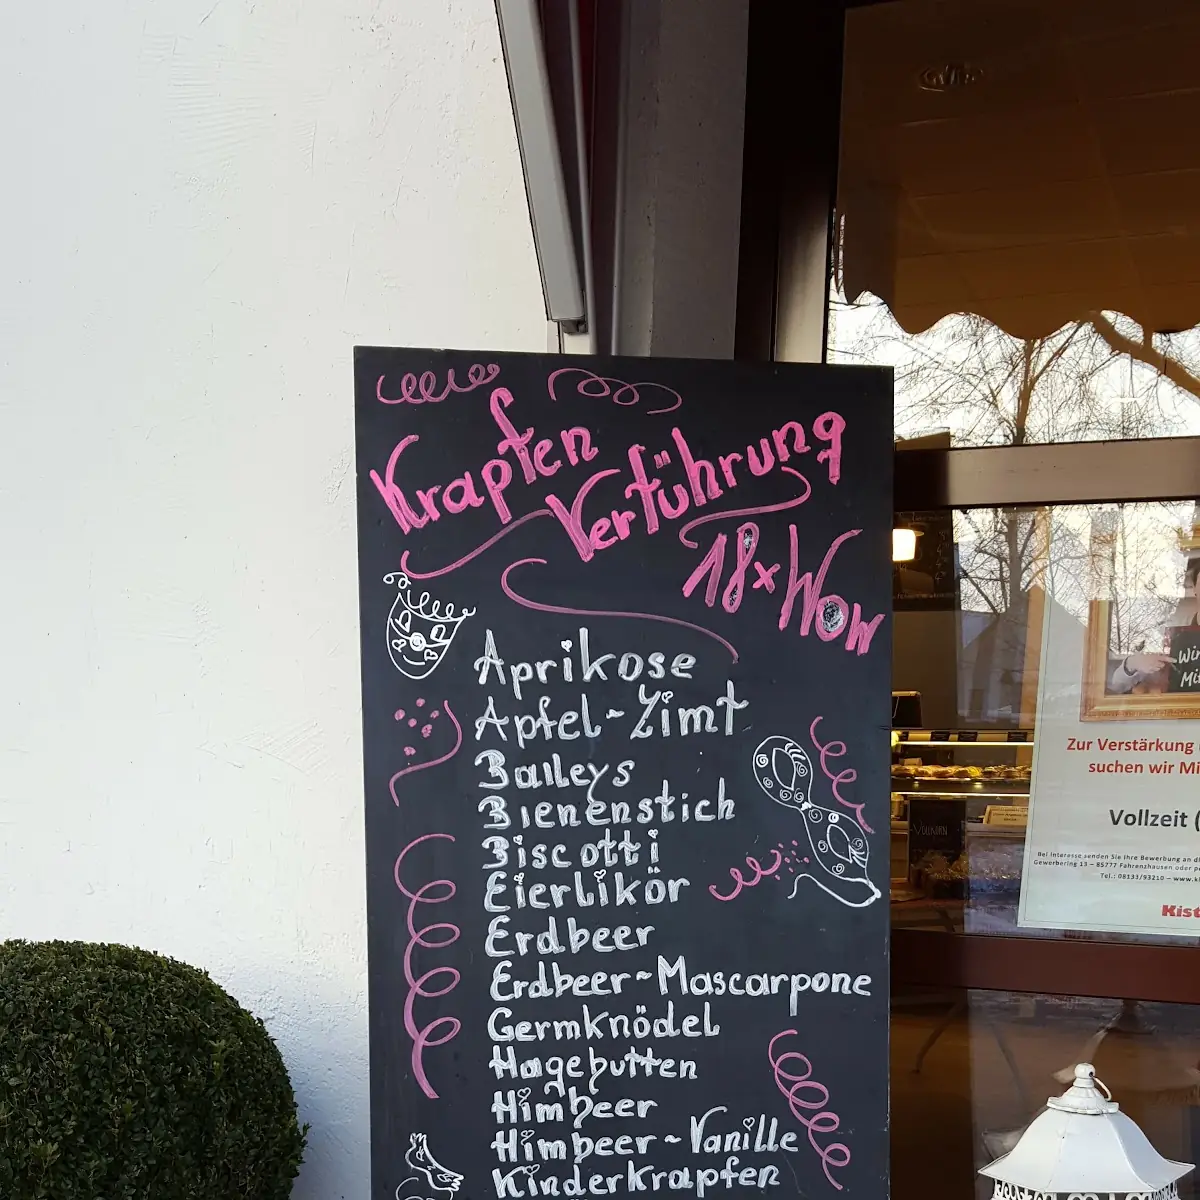 Krapfen
Verführung
18x Wow
Aprikose
Apfel-Zimt
Baileys
Bienenstich
Biscotti
Eierlikör
Erdbeer
Erdbeer-Mascarpone
Germknödel
Hagebutten
Himbeer
Himbeer-Vanille
Kinderkrapfen
Zur Verstärkung
suchen wir
Vollzeit (
Bei Interesse senden Sie Ihre Bewerbung an
Gewerbering 13 – 85777 Fahrenzhausen oder
Tel.: 08133/93210 – www.
Kist